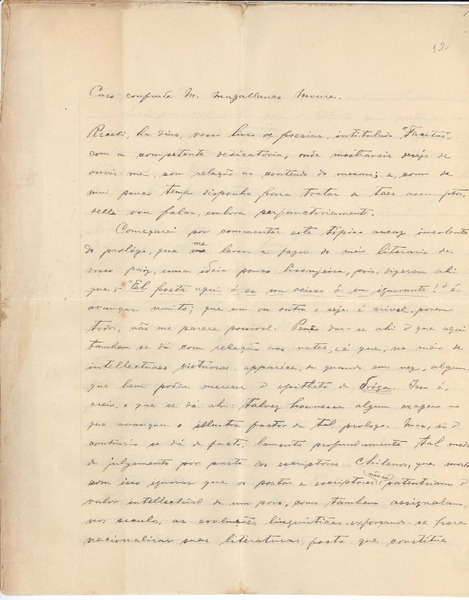 12
Caro confrade M. Magallanes Moure.
Recebi, ha dias, vosso livro de poesias, intitulado "Facetas",
com a competente dedicatoria, onde mostraveis desejo de
ouvir-me, com relação ao conteudo do mesmo; e, como de
mui pouco tempo disponho para tratar de taes assumptos,
delle vou falar, embora perfunctoriamente.
Começarei por commentar este tópico assaz insolente
do prologo, que me levou a fazer do meio literario de
vosso paiz, uma idéia pouco lisongeira, pois dizeram ahi
que, "El poeta aqui ó es un ocioso ó un ignorante!" é
avançar muito; que um ou outro o seja é crivel, porem
todo, não me parece possivel. Pens dar-se ahi o que aqui
tambem se dá com relação aos vates, é que, no meio de
intellectuaes distinctos, apparece, de quando em vez, algum
que bem podia merecer o epitheto de Isso é,
creio, o que se dá ahi: talvez houvesse algum exagero no
que avançou o illustre factor de tal prologo. Mas, si o
contrario se dá de facto, lamento profundamente tal modo
de julgamento por parte dos escriptores Chilenos, que mostram
com isso ignorar que os poetas e escriptores não só patenteiam o
valor intellectual de um povo, como tambem assignalam,
nos seculos, as evoluções linguisticas, esforçando-se para
nacionalizar suas literaturas, facto que constitue